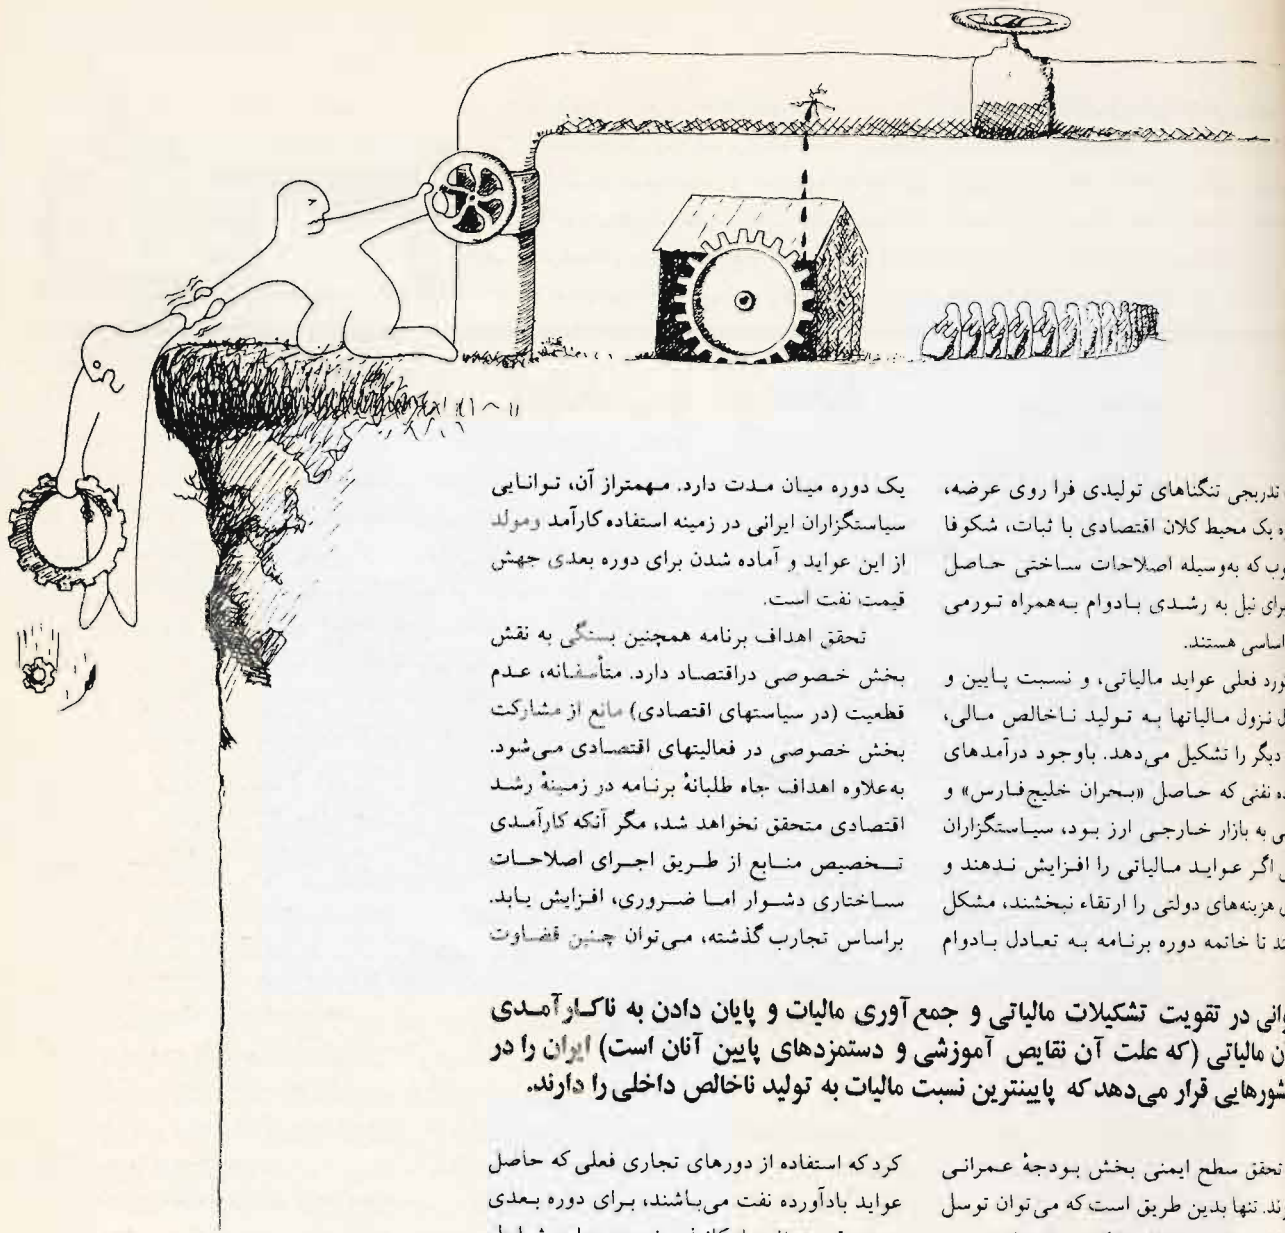 تدریجی تنگناهای تولیدی فرا روی عرضه،
یک محیط کلان اقتصادی با ثبات، شکوفا
که به‌وسیله اصلاحات ساختی حاصل
برای نیل به رشدی بادوام به‌همراه تورمی
اساسی هستند.
فعلی عواید مالیاتی، و نسبت پایین و
نزول مالیاتها به تولید ناخالص مالی،
دیگر را تشکیل می‌دهد. باوجود درآمدهای
نفتی که حاصل «بحران خلیج‌فارس» و
به بازار خارجی ارز بود، سیاستگزاران
اگر عواید مالیاتی را افزایش ندهند و
هزینه‌های دولتی را ارتقاء نبخشند، مشکل
تا خاتمه دوره برنامه به تعادل بادوام
یک دوره میان مدت دارد. مهمتراز آن، توانایی
سیاستگزاران ایرانی در زمینه استفاده کارآمد ومولد
از این عواید و آماده شدن برای دوره بعدی جهش
قیمت نفت است.
تحقق اهداف برنامه همچنین بستگی به نقش
بخش خصوصی دراقتصاد دارد. متأسفانه، عدم
قطعیت (در سیاستهای اقتصادی) مانع از مشارکت
بخش خصوصی در فعالیتهای اقتصادی می‌شود.
به‌علاوه اهداف جاه طلبانهٔ برنامه در زمینهٔ رشد
اقتصادی متحقق نخواهد شد، مگر آنکه کارآمدی
تخصیص منابع از طریق اجرای اصلاحات
ساختاری دشوار اما ضروری، افزایش یابد.
براساس تجارب گذشته، می‌توان چنین قضاوت
در تقویت تشکیلات مالیاتی و جمع آوری مالیات و پایان دادن به ناکارآمدی
مالیاتی (که علت آن نقایص آموزشی و دستمزدهای پایین آنان است) ایران را در
قرار می‌دهد که پایینترین نسبت مالیات به تولید ناخالص داخلی را دارند.
تحقق سطح ایمنی بخش بودجهٔ عمرانی
تنها بدین طریق است که می‌توان توسل
کرد که استفاده از دورهای تجاری فعلی که حاصل
عواید بادآورده نفت می‌باشند، برای دوره بعدی